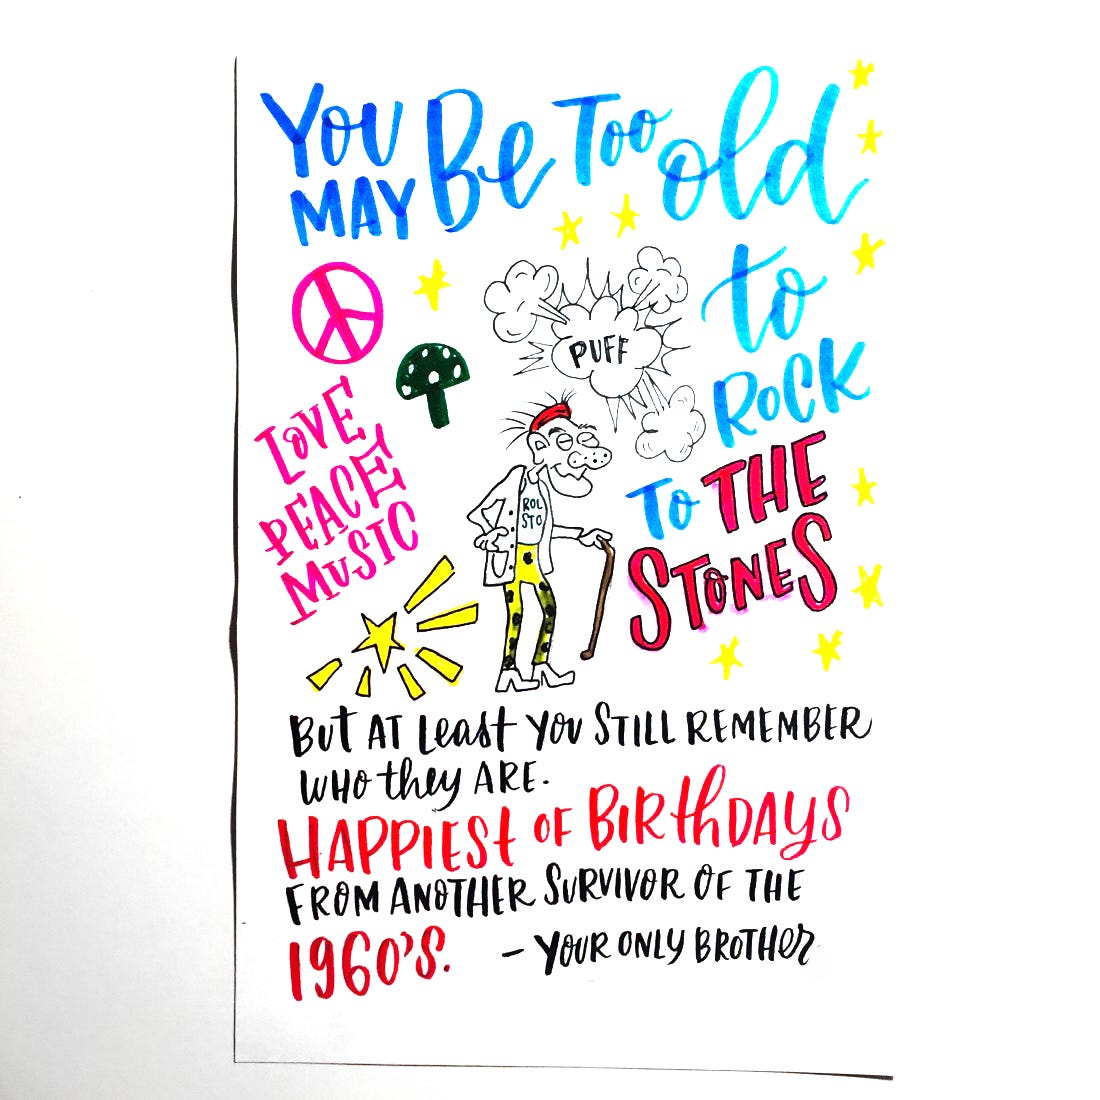 YOU
MAY Be Too old
to
ROCK
To THE
STONES
PUFF
LOVE
PEACE
MUSIC
ROL
STO
But AT Least you STILL REMEMBER
WHO they ARE.
HAPPIEst OF BIRthDAYS
FROM ANOTHER SURVIVOR OF THE
1960'S. – YOUR ONLY BROTHER